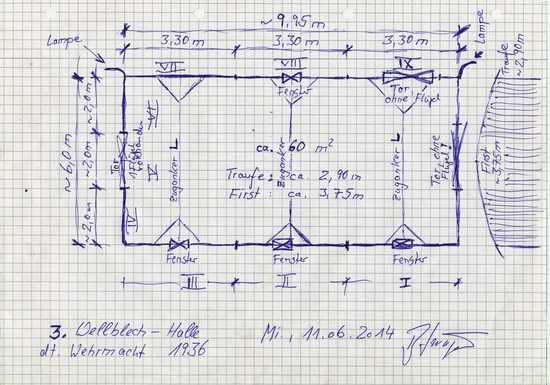 ~ 9,95 m
Lampe
Lampe
3,30 m
3,30 m
3,30 m
Traufe
~ 2,90 m
VII
VIII
IX
Fenster
Tor
ohne Flügel
~ 6,0 m
~ 2,0 m
~ 2,0 m
~ 2,0 m
VI
V
IV
Tor
1 Flügel
vorhanden
Zuganker
Zuganker
Zuganker
ca. 60 m²
Traufe: ca. 2,90 m
First: ca. 3,75 m
Tor ohne
Flügel!
First
~ 3,75 m
Fenster
Fenster
Fenster
III
II
I
3. Wellblech - Halle
dt. Wehrmacht 1936
Mi., 11.06.2014